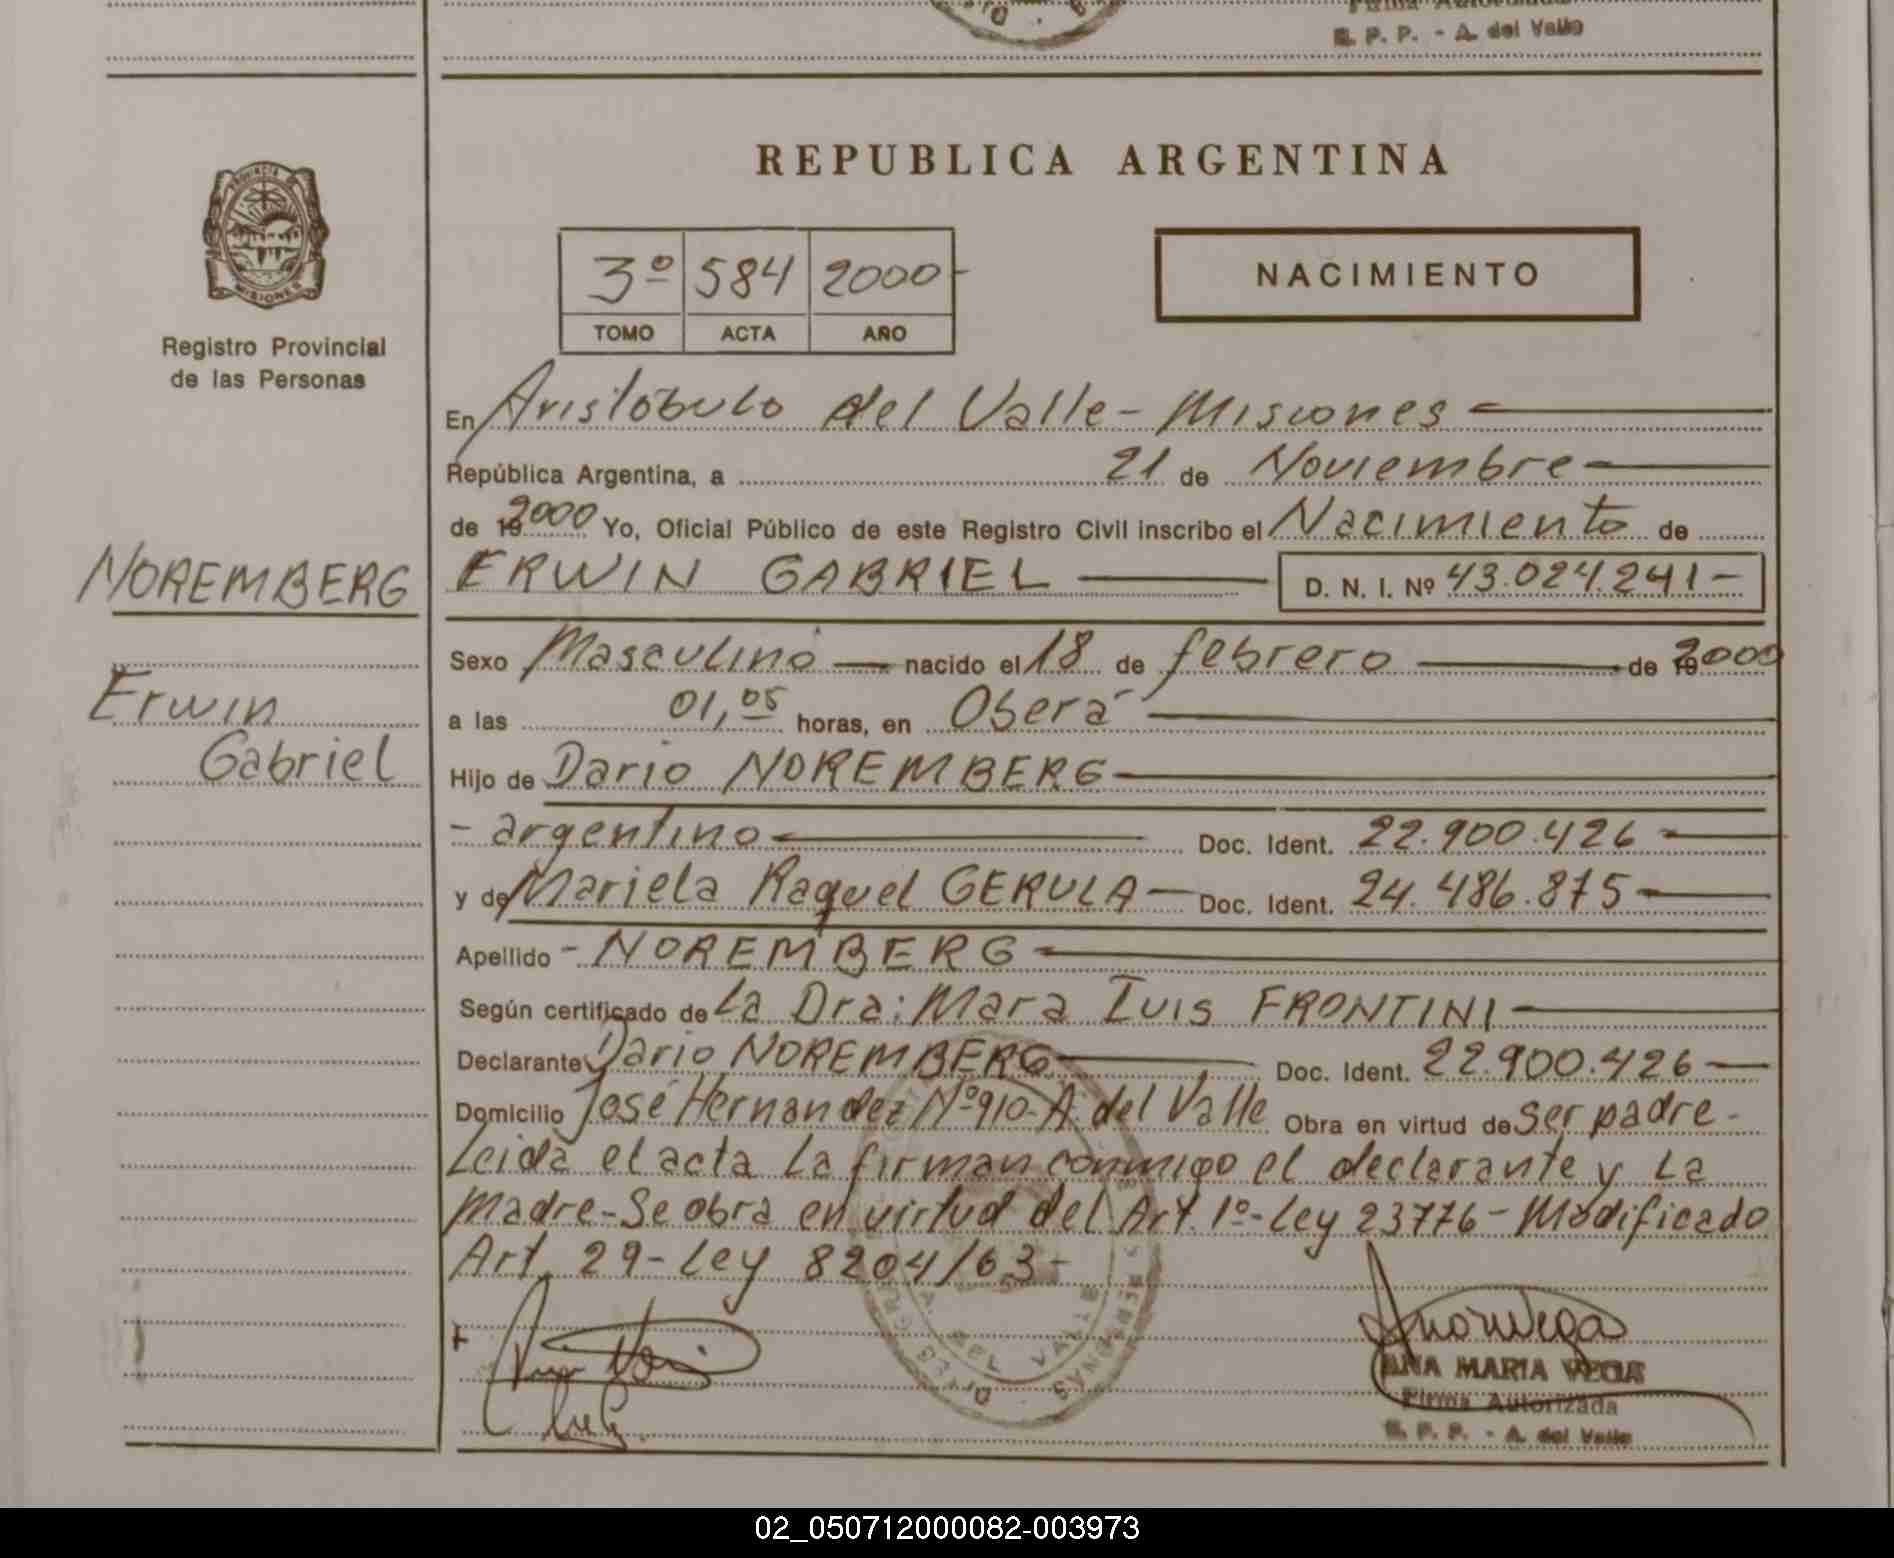 Firma Autorizada
R. P. P. - A. del Valle
REPUBLICA ARGENTINA
PROVINCIA DE
MISIONES
Registro Provincial
de las Personas
3º 584 2000-
TOMO ACTA AÑO
NACIMIENTO
En Aristóbulo del Valle - Misiones
República Argentina, a 21 de Noviembre
de 19 2000 Yo, Oficial Público de este Registro Civil inscribo el Nacimiento de
NOREMBERG
ERWIN GABRIEL D. N. I. Nº 43.024.241-
Sexo Masculino nacido el 18 de febrero de 19 2000
Erwin
Gabriel
a las 01,05 horas, en Oberá
Hijo de Dario NOREMBERG
- argentino Doc. Ident. 22.900.426
y de Mariela Raquel GERULA - Doc. Ident. 24.486.875
Apellido - NOREMBERG
Según certificado de La Dra: Mara Iuis FRONTINI
Declarante Dario NOREMBERG Doc. Ident. 22.900.426
Domicilio José Hernandez Nº 910- A. del Valle Obra en virtud de ser padre -
Leida el acta la firman conmigo el declarante y la
Madre - Se obra en virtud del Art. 1º - Ley 23776 - Modificado
Art. 29 - Ley 8204/63 -
A. DEL VALLE
ANA MARIA VEGA
Firma Autorizada
R. P. P. - A. del Valle
02_050712000082-003973